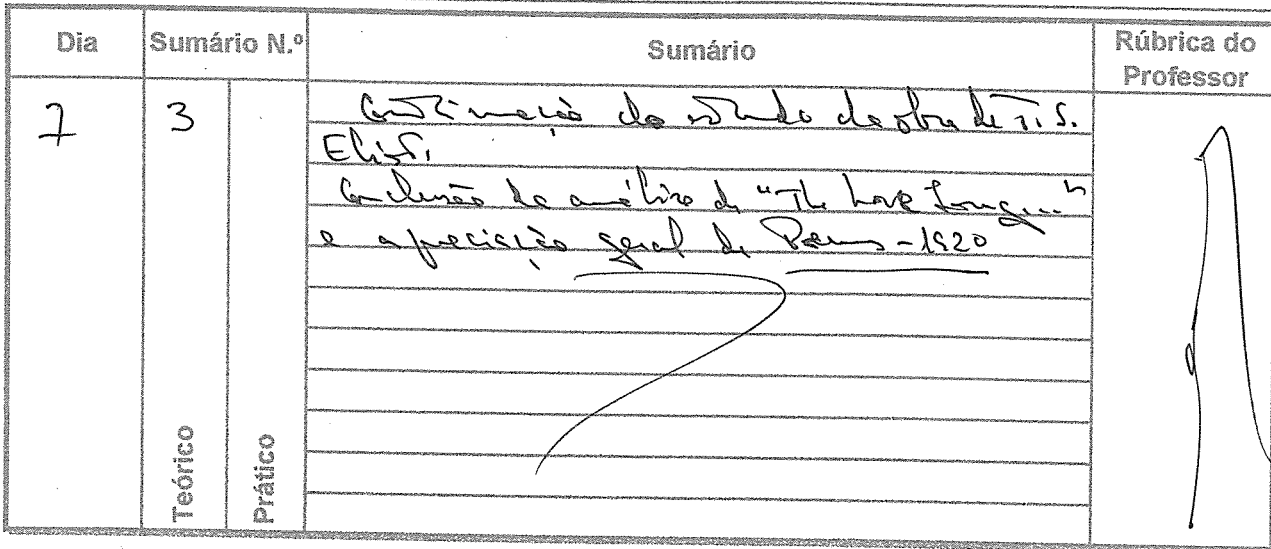 Dia Sumário N.º Sumário Rúbrica do Professor
7 3 Continuação do estudo da obra de T. S.
Eliot.
Conclusão da análise de "The Love Song..."
e apreciação geral de Poems - 1920
Teórico Prático